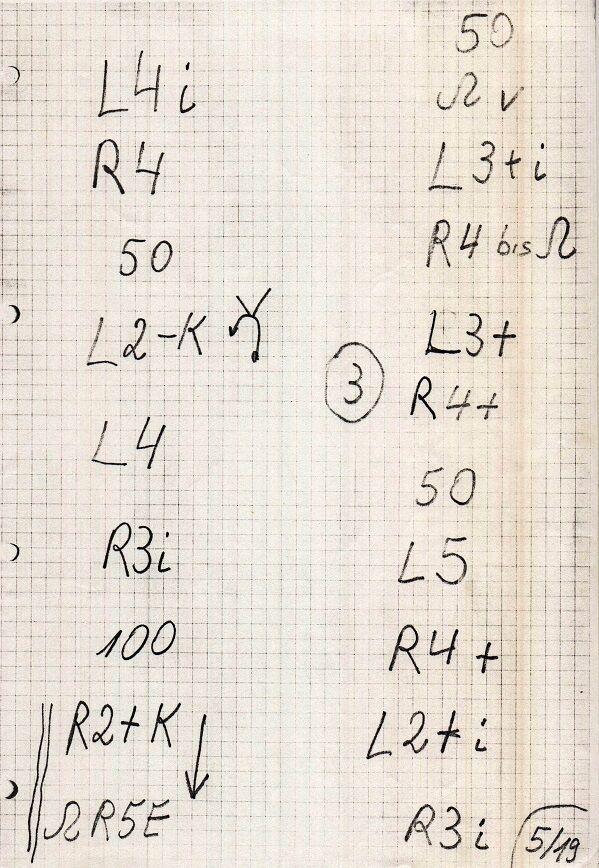 L4i
R4
50
L2-K
L4
R3i
100
R2+K
Ω R5E
50
Ω v
L3+i
R4 bis Ω
L3+
3
R4+
50
L5
R4+
L2+i
R3i
5/19